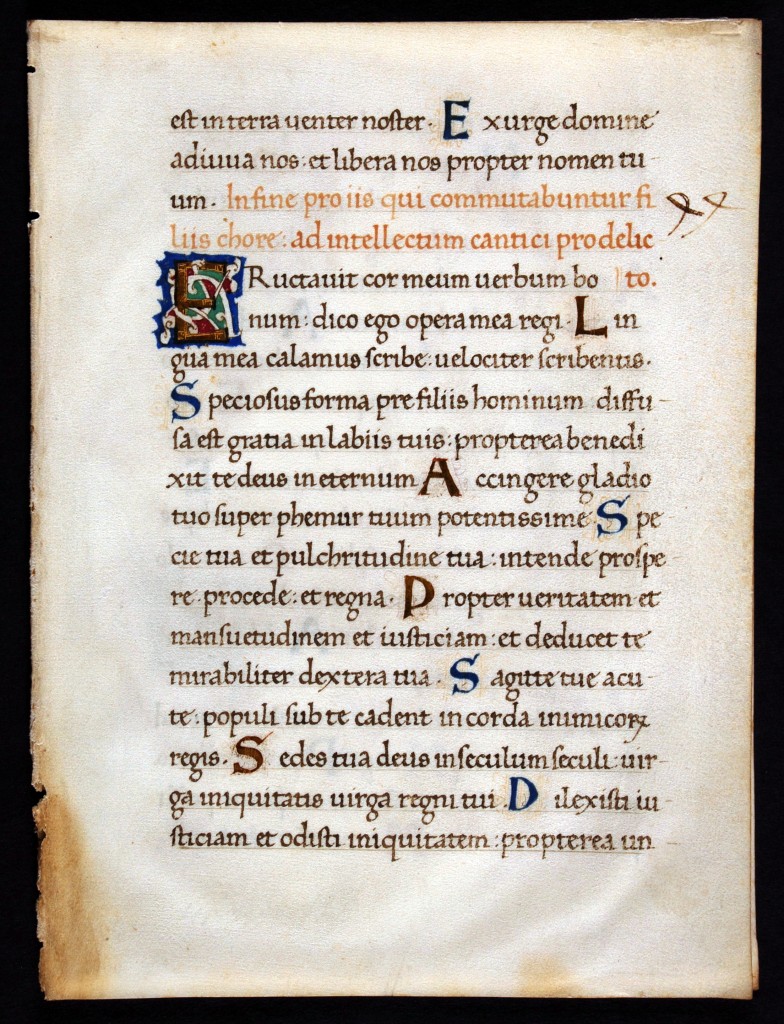 est in terra uenter noster· Exurge domine
adiuua nos: et libera nos propter nomen tu
um· In fine pro iis qui commutabuntur fi
liis chore: ad intellectum cantici pro delic
ERuctauit cor meum uerbum bo to.
num: dico ego opera mea regi· Lin
gua mea calamus scribe: uelociter scribentis·
Speciosus forma pre filiis hominum diffu
sa est gratia in labiis tuis: propterea benedi
xit te deus in eternum Accingere gladio
tuo super phemur tuum potentissime· Spe
cie tua et pulchritudine tua: intende prospe
re· procede: et regna· Propter ueritatem et
mansuetudinem et iusticiam: et deducet te
mirabiliter dextera tua· Sagitte tue acu
te: populi sub te cadent in corda inimicoꝝ
regis· Sedes tua deus in seculum seculi: uir
ga iniquitatis uirga regni tui· Dilexisti iu
sticiam et odisti iniquitatem: propterea un